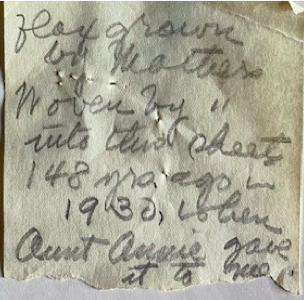 flax grown
by Mothers
Woven by "
into this sheet
148 yrs. ago in
1930, when
Aunt Annie gave
it to me.